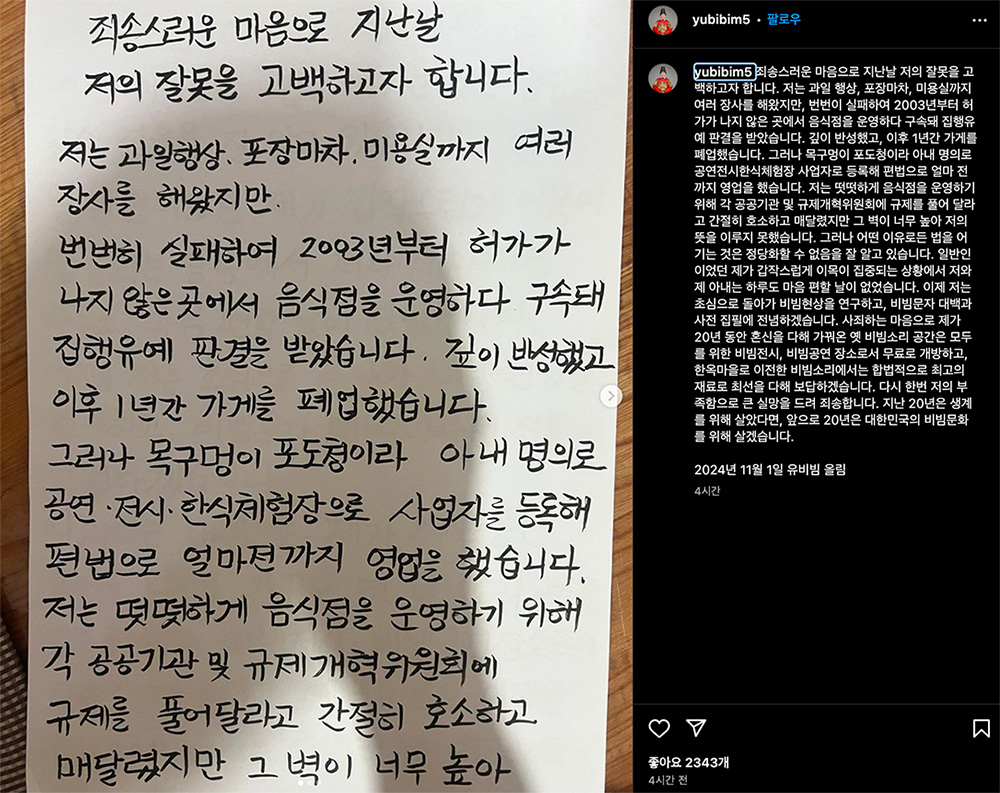 죄송스러운 마음으로 지난날
저의 잘못을 고백하고자 합니다.
저는 과일행상. 포장마차. 미용실까지 여러
장사를 해왔지만.
번번히 실패하여 2003년부터 허가가
나지 않은 곳에서 음식점을 운영하다 구속돼
집행유예 판결을 받았습니다. 깊이 반성했고
이후 1년간 가게를 폐업했습니다.
그러나 목구멍이 포도청이라 아내 명의로
공연·전시·한식체험장으로 사업자를 등록해
편법으로 얼마전까지 영업을 했습니다.
저는 떳떳하게 음식점을 운영하기 위해
각 공공기관 및 규제개혁위원회에
규제를 풀어달라고 간절히 호소하고
매달렸지만 그 벽이 너무 높아
yubibim5 • 팔로우
yubibim5 죄송스러운 마음으로 지난날 저의 잘못을 고
백하고자 합니다. 저는 과일 행상, 포장마차, 미용실까지
여러 장사를 해왔지만, 번번이 실패하여 2003년부터 허
가가 나지 않은 곳에서 음식점을 운영하다 구속돼 집행유
예 판결을 받았습니다. 깊이 반성했고, 이후 1년간 가게를
폐업했습니다. 그러나 목구멍이 포도청이라 아내 명의로
공연전시한식체험장 사업자로 등록해 편법으로 얼마 전
까지 영업을 했습니다. 저는 떳떳하게 음식점을 운영하기
위해 각 공공기관 및 규제개혁위원회에 규제를 풀어 달라
고 간절히 호소하고 매달렸지만 그 벽이 너무 높아 저의
뜻을 이루지 못했습니다. 그러나 어떤 이유로든 법을 어
기는 것은 정당화할 수 없음을 잘 알고 있습니다. 일반인
이었던 제가 갑작스럽게 이목이 집중되는 상황에서 저와
제 아내는 하루도 마음 편할 날이 없었습니다. 이제 저는
초심으로 돌아가 비빔현상을 연구하고, 비빔문자 대백과
사전 집필에 전념하겠습니다. 사죄하는 마음으로 제가
20년 동안 혼신을 다해 가꿔온 옛 비빔소리 공간은 모두
를 위한 비빔전시, 비빔공연 장소로서 무료로 개방하고,
한옥마을로 이전한 비빔소리에서는 합법적으로 최고의
재료로 최선을 다해 보답하겠습니다. 다시 한번 저의 부
족함으로 큰 실망을 드려 죄송합니다. 지난 20년은 생계
를 위해 살았다면, 앞으로 20년은 대한민국의 비빔문화
를 위해 살겠습니다.
2024년 11월 1일 유비빔 올림
4시간
좋아요 2343개
4시간 전